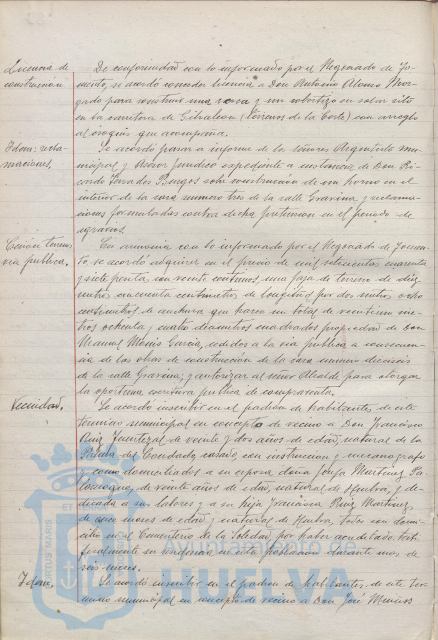 Licencia de
construcción
De conformidad con lo informado por el Negociado de Fo-
mento, se acordó conceder licencia a Don Antonio Alonso
para construir una casa y un cobertizo en solar sito
en la carretera de Gibraleón (terrenos de la Corte) con arreglo
al croquis que acompaña.
Idem: recla-
maciones.
Se acordó pasar a informe de los señores Arquitecto mu-
nicipal y Asesor Jurídico expediente a instancia de Don Ri-
cardo sobre construcción de un horno en el
interior de la casa número tres de la calle Gravina, y reclama-
ciones formuladas contra dicha pretension en el período de
agravios.
Cesión terreno
vía pública.
En armonía con lo informado por el Negociado de Fomen-
to se acordó adquirir en el precio de mil setecientas cuarenta
y siete pesetas, con veinte céntimos, una faja de terreno de diez
metros, cincuenta centímetros de longitud por dos metros, ocho
centímetros de anchura que hacen un total de veintiun me-
tros ochenta y cuatro decímetros cuadrados propiedad de Don
Manuel García, cedidos a la vía pública a consecuen-
cia de las obras de construcción de la casa número dieciseis
de la calle Gravina; y autorizar al señor Alcalde para otorgar
la oportuna escritura pública de compraventa.
Vecindad.
Se acordó inscribir en el padrón de habitantes de este
término municipal en concepto de vecino a Don Francisco
Ruiz de veinte y dos años de edad, natural de la
Palma del Condado, casado, con instrucción y mecanógrafo
y como domiciliados a su esposa doña Josefa Martínez Pa-
de veinte años de edad, natural de Huelva, y de-
dicada a sus labores y a su hija Francisca Ruiz Martínez,
de cinco meses de edad y natural de Huelva, todos con domi-
cilio en el Cementerio de la Soledad, por haber acreditado testi-
ficalmente su residencia en esta población durante mas de
seis meses.
Idem.
Se acordó inscribir en el padrón de habitantes de este tér-
mino municipal en concepto de vecino a Don José
Ayuntamiento de
HUELVA